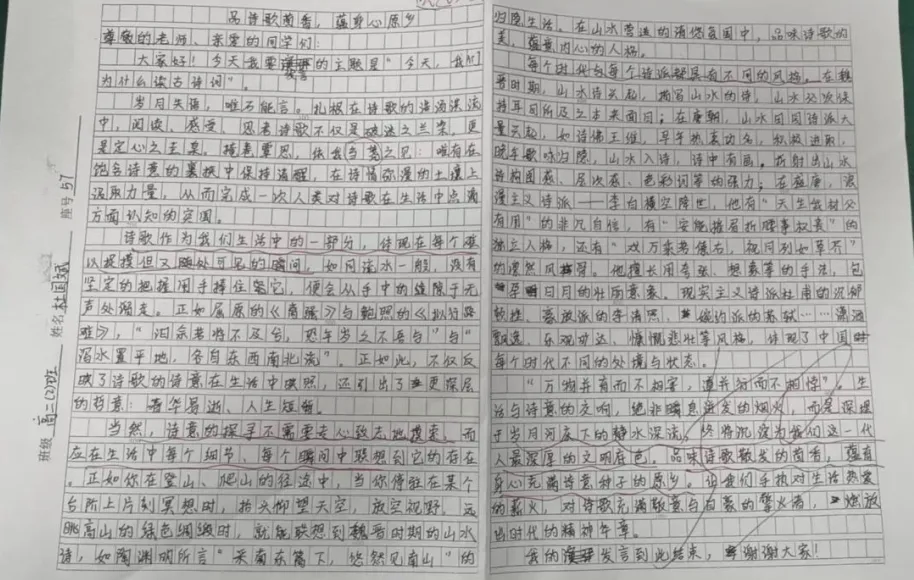 品诗歌茴香，蕴身心原乡
尊敬的老师、亲爱的同学们：
大家好！今天我要发言的主题是“今天，我们
为什么读古诗词”。
岁月失语，唯石能言。扎根在诗歌的浩渺深流
中，阅读、感受、思考诗歌不仅是破迷之兰桨，更
是定心之圭臬。掩卷覃思，依我当前之见：唯有在
饱含诗意的裹挟中保持清醒，在诗情弥漫的土壤上
汲取力量，从而完成一次人类对诗歌在生活中点滴
方面认知的突围。
诗歌作为我们生活中的一部分，体现在每个难
以捉摸但又随处可见的瞬间，如同流水一般，没有
坚定的把握用手捧住紧它，便会从手中的缝隙于无
声处溜走。正如屈原的《离骚》与鲍照的《拟行路
难》，“汩余若将不及兮，恐年岁之不吾与”与“
泻水置平地，各自东西南北流”。正如此，不仅反
映了诗歌的诗意在生活中映照，还引出了更深层
的哲意：春华易逝、人生短暂。
当然，诗意的探寻不需要专心致志地摸索，而
应在生活中每个细节、每个瞬间中联想到它的存在
。正如你在登山、爬山的征途中，当你停驻在某个
台阶上片刻冥想时，抬头仰望天空，放空视野，远
眺高山的绿色绸缎时，就能联想到魏晋时期的山水
诗，如陶渊明所言“采菊东篱下，悠然见南山”的
归隐生活。在山水营造的清悠氛围中，品味诗歌的
美，蕴意内心的人格。
每个时代与每个诗派都具有不同的风格。在魏
晋时期，山水诗兴起，描写山水的诗，山水必效保
持耳目所及之本来面目；在唐朝，山水田园诗派大
量兴起，如诗佛王维，早年热衷功名，积极进取，
晚年歌咏归隐，山水入诗，诗中有画。折射出山水
诗构图感、层次感、色彩词等的张力；在盛唐，浪
漫主义诗派——李白横空降世，他有“天生我材必
有用”的非凡自信，有“安能摧眉折腰事权贵”的
独立人格，还有“戏万乘若僚友，视同列如草芥”
的凛然风格。他擅长用夸张、想象等的手法，包
举日月的壮丽意象。现实主义诗派杜甫的沉郁
顿挫、豪放派的李清照、婉约派的苏轼……潇洒
飘逸、乐观旷达、慷慨悲壮等风格，体现了中国
每个时代不同的处境与状态。
“万物并育而不相害，道并行而不相悖”。生
活与诗意的交响，绝非瞬息迸发的烟火，而是深埋
于岁月河床下的静水深流，终将沉淀为我们这一代
人最深厚的文明底色。品味诗歌散发的茴香，蕴育
身心充满诗意种子的原乡。但我们手执对生活热爱
的薪火，对诗歌充满敬意与自豪的擎火者，燃放
出时代的精神华章。
我的发言到此结束，谢谢大家！
班级 高二(2)班
座号 57